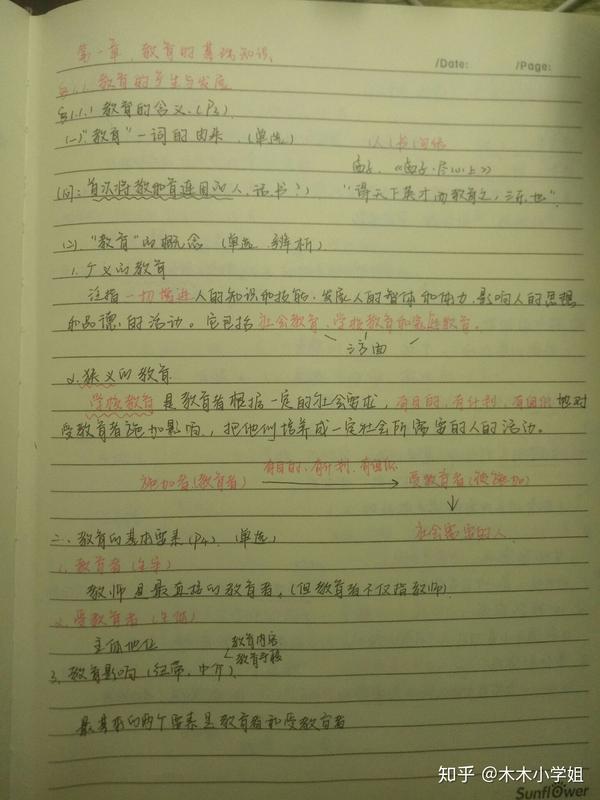 第一章、教育的基础知识
/Date: /Page:
§1.1 教育的产生与发展
§1.1.1 教育的含义.(P3)
(一)"教育"一词的由来 (单选)
孟子.《孟子·尽心上》
(问:首次将教和育连用的人、语书?) "得天下英才而教育之,三乐也"
(二)."教育"的概念 (单选.辨析)
1.广义的教育
泛指一切增进人的知识和技能、发展人的智力和体力、影响人的思想
和品德的活动。它包括社会教育、学校教育和家庭教育。
三方面
2.狭义的教育
学校教育是教育者根据一定的社会要求,有目的、有计划、有组织地对
受教育者施加影响,把他们培养成一定社会所需要的人的活动。
施加者(教育者) 有目的、有计划、有组织 受教育者(被施加)
社会需要的人
二、教育的基本要素(P4) (单选)
1.教育者(主导)
教师是最直接的教育者。(但教育者不仅指教师)
2.受教育者(主体)
主体地位
教育内容
教育手段
3.教育影响(纽带、中介)
最基本的两个要素是教育者和受教育者
知乎 @木木小学姐
Sunflower